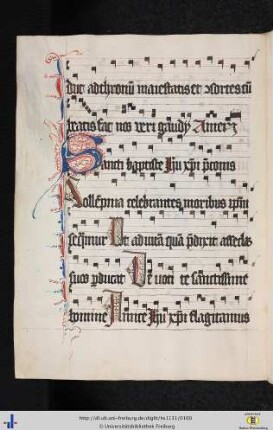 duc ad thronū maiestatis et ꝯsortes cū
beatis fac nos veri gaudij Amen
Sancti baptiste Ihu xp̄i p̄conis
Sollēpnia celebrantes moribus ip̄m
seq̄mur Ut ad viā quā p̄dixit asseclas
suos ꝑducat De uoti te sanctissime
hominū Amice Ihu xp̄i flagitamus
http://dl.ub.uni-freiburg.de/diglit/hs1131/0160
© Universitätsbibliothek Freiburg